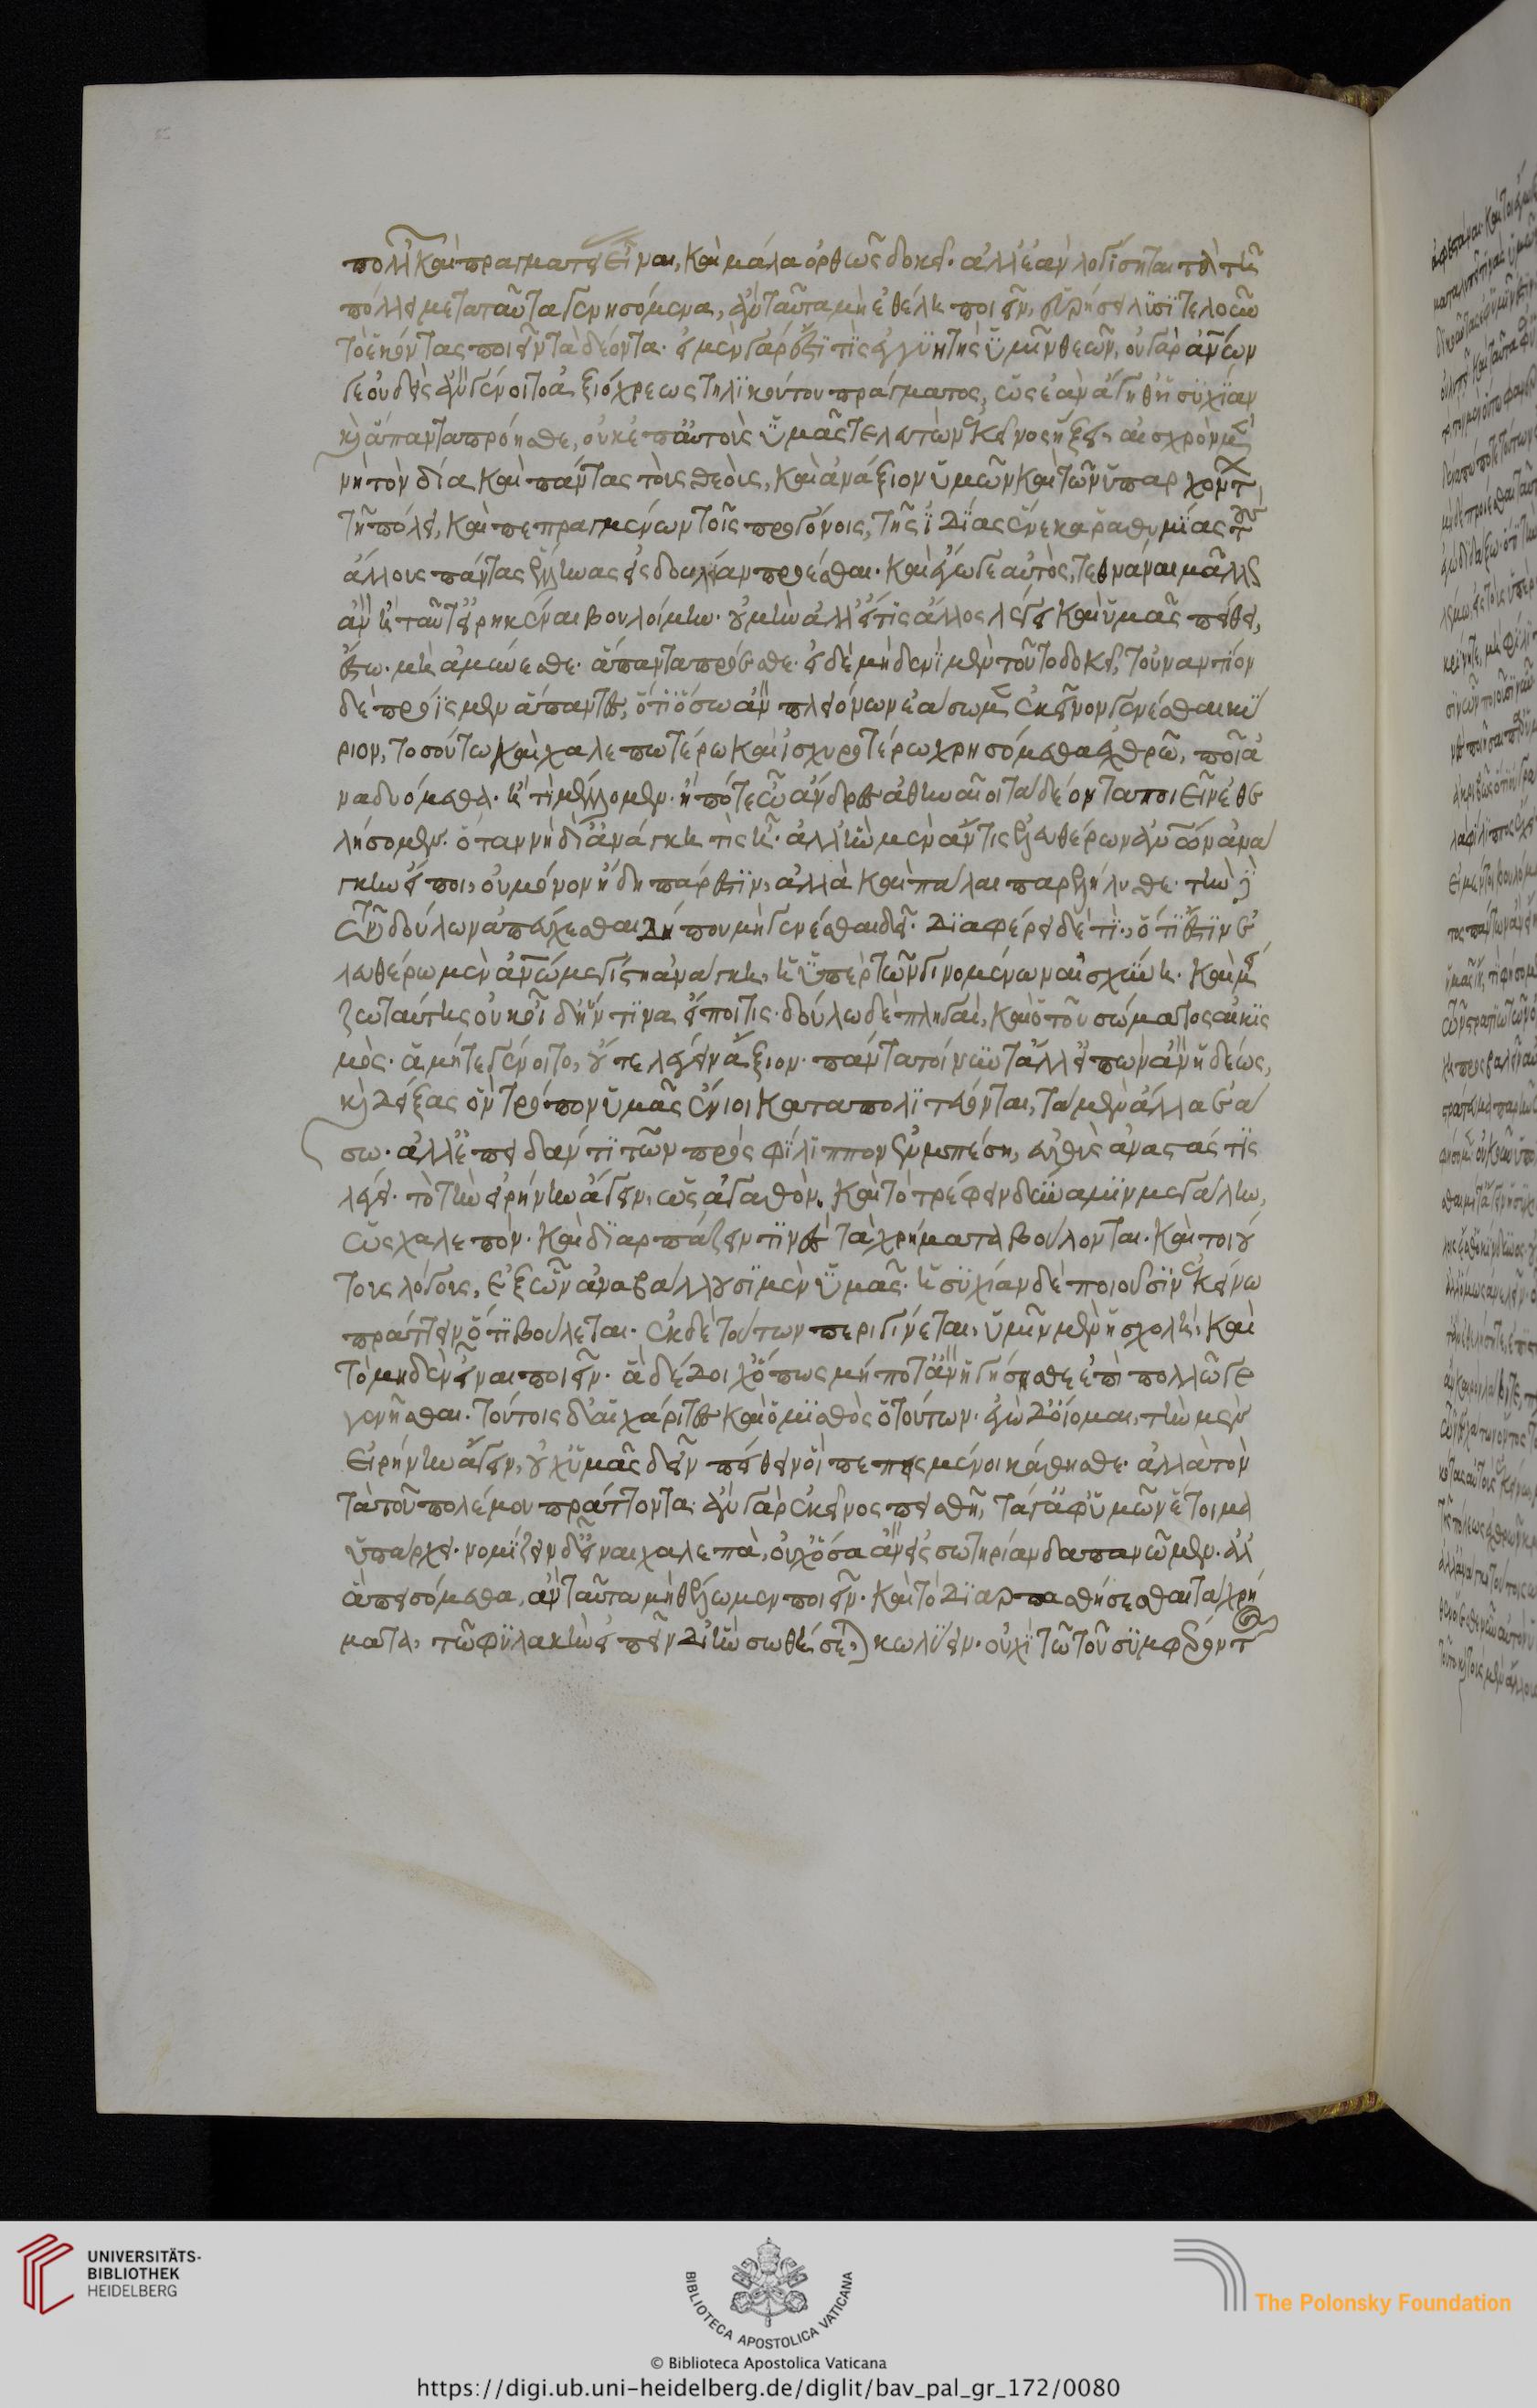 πολλῶν καὶ πραγματείας εἶναι, καὶ μάλα ὀρθῶς δοκεῖ· ἀλλ' ἐὰν λογίσηται τὰ τῇ
πόλει μετὰ ταῦτα γενησόμενα, ἂν ταῦτα μὴ ἐθέλῃ ποιεῖν, εὑρήσει λυσιτελοῦν
τὸ ἑκόντας ποιεῖν τὰ δέοντα· εἰ μὲν γάρ ἐστί τις ἐγγυητὴς ὑμῖν θεῶν, οὐ γὰρ ἀνθρώπων
γε οὐδεὶς ἂν γένοιτο ἀξιόχρεως τηλικούτου πράγματος, ὡς ἐὰν ἄγηθ' ἡσυχίαν
καὶ ἅπαντα πρόησθε, οὐκ ἐπ' αὐτοὺς ὑμᾶς τελευτῶν ἐκεῖνος ἥξει, αἰσχρὸν μὲν
νὴ τὸν δία καὶ πάντας τοὺς θεοὺς, καὶ ἀνάξιον ὑμῶν καὶ τῶν ὑπαρχόντων
τῇ πόλει, καὶ πεπραγμένων τοῖς προγόνοις, τῆς ἰδίας ἕνεκα ῥαθυμίας τοὺς
ἄλλους πάντας ἕλληνας εἰς δουλείαν προέσθαι· καὶ ἔγωγε αὐτὸς, τεθνάναι μᾶλλον
ἂν ἢ ταῦτ' εἰρηκέναι βουλοίμην· οὐ μὴν ἀλλ' εἴ τις ἄλλος λέγει καὶ ὑμᾶς πείθει,
ἔστω· μὴ ἀμύνεσθε· ἅπαντα πρόεσθε· εἰ δὲ μηδενὶ μὲν τοῦτο δοκεῖ, τοὐναντίον
δὲ πρόϊσμεν ἅπαντες, ὅτι ὅσῳ ἂν πλειόνων ἐάσωμεν ἐκεῖνον γενέσθαι κύ
ριον, τοσούτῳ καὶ χαλεπωτέρῳ καὶ ἰσχυροτέρῳ χρησόμεθα ἐχθρῷ, ποῖ ἀ
ναδυόμεθα· ἢ τί μέλλομεν· ἢ πότε ὦ ἄνδρες ἀθηναῖοι τὰ δέοντα ποιεῖν ἐθε
λήσομεν· ὅταν νὴ δί' ἀνάγκη τις ᾖ· ἀλλ' ἣν μὲν ἄν τις ἐλευθέρων ἀνθρώπων ἀνά
γκην εἴποι, οὐ μόνον ἤδη πάρεστιν, ἀλλὰ καὶ πάλαι παρελήλυθε· τὴν δὲ
τῶν δούλων ἀπεύχεσθαι δήπου μὴ γενέσθαι δεῖ· διαφέρει δὲ τί, ὅτι ἐστὶν ἐ
λευθέρῳ μὲν ἀνθρώπῳ μεγίστη ἀνάγκη, ἡ ὑπὲρ τῶν γινομένων αἰσχύνη· καὶ μεί
ζω ταύτης οὐκ οἶδ' ἥντινα εἴποι τις· δούλῳ δὲ πληγαὶ, καὶ ὁ τοῦ σώματος αἰκισ
μὸς· ἃ μήτε γένοιτο, οὔτε λέγειν ἄξιον· πάντα τοίνυν τἄλλ' εἰπὼν ἂν ἡδέως,
καὶ δείξας ὃν τρόπον ὑμᾶς ἔνιοι καταπολιτεύονται, τὰ μὲν ἄλλα ἐά
σω· ἀλλ' ἐπειδάν τι τῶν πρὸς φίλιππον ξυμπέσῃ, εὐθὺς ἀναστάς τις
λέγει· τὸ τὴν εἰρήνην ἄγειν, ὡς ἀγαθὸν· καὶ τὸ τρέφειν δύναμιν μεγάλην,
ὡς χαλεπὸν· καὶ διαρπάζειν τινὲς τὰ χρήματα βούλονται· καὶ τοιού
τους λόγους, ἐξ ὧν ἀναβάλλουσι μὲν ὑμᾶς· ἡσυχίαν δὲ ποιοῦσιν ἐκείνῳ
πράττειν ὅ τι βούλεται· ἐκ δὲ τούτων περιγίνεται, ὑμῖν μὲν ἡ σχολὴ, καὶ
τὸ μηδὲν εἶναι ποιεῖν· ἃ δέδοιχ' ὅπως μή ποτ' ἂν ἡγήσησθε ἐπὶ πολλῷ γε
γενῆσθαι· τούτοις δ' αἱ χάριτες καὶ ὁ μισθὸς ὁ τούτων· ἐγὼ δ' οἴομαι, τὴν μὲν
εἰρήνην ἄγειν, οὐχ ὑμᾶς δεῖν πείθειν οἳ πεπεισμένοι κάθησθε· ἀλλὰ τὸν
τὰ τοῦ πολέμου πράττοντα· ἂν γὰρ ἐκεῖνος πεισθῇ, τά γ' ἀφ' ὑμῶν ἕτοιμα
ὑπάρχει· νομίζειν δ' εἶναι χαλεπὰ, οὐχ ὅσα ἂν εἰς σωτηρίαν δαπανῶμεν· ἀλλ'
ἃ πεισόμεθα, ἂν ταῦτα μὴ θέλωμεν ποιεῖν· καὶ τὸ διαρπασθήσεσθαι τὰ χρή
ματα, τῷ φυλακὴν εἰπεῖν δι' ἧς σωθήσεται κωλύειν· οὐχὶ τῷ τοῦ συμφέροντος
UNIVERSITÄTS-
BIBLIOTHEK
HEIDELBERG
BIBLIOTECA APOSTOLICA VATICANA
The Polonsky Foundation
© Biblioteca Apostolica Vaticana
https://digi.ub.uni-heidelberg.de/diglit/bav_pal_gr_172/0080